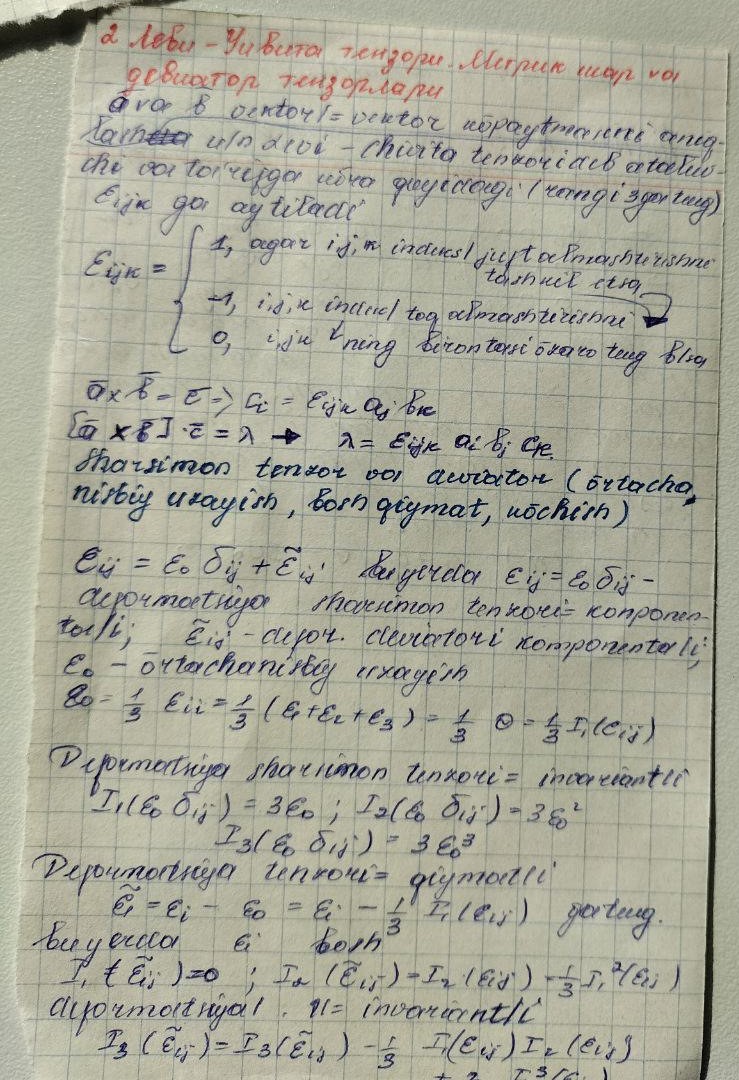 2 Леви-Чивита тензори. Метрик шар va
девиатор тензорлари
ā va b̄ vektor/= vektor kopaytmasini aniq-
lash u/n Levi-Chivita tenzori deb ataluv-
chi va ta'rifga ko'ra quyidagi (rangi 3 ga teng)
Eijk ga aytiladi
εijk = { 1, agar i,j,k indeks/ juft almashtirishni
tashkil etsa
-1, i,j,k indek/ toq almashtirishni
0, i,jk ning birontasi ōzaro teng b/sa
ā×b̄ = c̄ => ci = εijk aj bk
[ā×b̄]·c̄ = λ → λ = εijk ai bj ck
Sharsimon tenzor va deviator (ōrtacha,
nisbiy uzayish, bosh qiymat, kōchish)
εij = ε0 δij + ε̃ij; bu yerda εij = ε0 δij -
deformatsiya sharsimon tenzori= konponen-
tal/i; ε̃ij - defor. deviatori komponenta/i;
ε0 - ōrtacha nisbiy uzayish
ε0 = 1/3 εii = 1/3 (ε1+ε2+ε3) = 1/3 Θ = 1/3 I1(εij)
Deformatsiya sharsimon tenzori= invariant/i
I1(ε0 δij) = 3ε0 ; I2(ε0 δij) = 3ε0²
I3(ε0 δij) = 3ε0³
Deformatsiya tenzori= qiymat/i
ε̃i = εi - ε0 = εi - 1/3 I1(εij) ga teng.
bu yerda εi bosh
I1(ε̃ij)=0 ; I2(ε̃ij) = I2(εij) - 1/3 I1²(εij)
deformatsiya/. n= invariant/i
I3(ε̃ij) = I3(ε̃ij) - 1/3 I(εij) I2(εij)